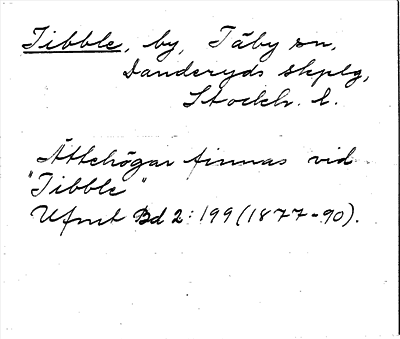 Tibble, by, Täby sn,
Danderyds skplg,
Stockh. l.
Ättehögar finnas vid
"Tibble"
Ufmt Bd 2:199 (1877-90).